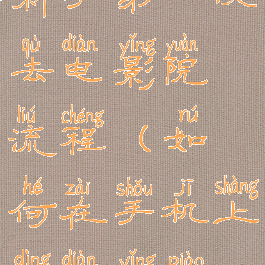 qù diàn yǐng yuàn
去电影院
liú chéng rú
流程（如
hé zài shǒu jī shàng
何在手机上
dìng diàn yǐng piào